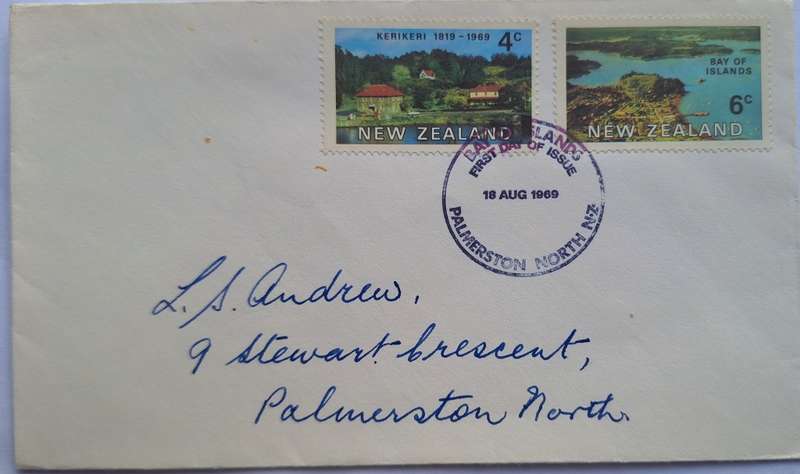 KERIKERI 1819-1969 4c
NEW ZEALAND
BAY OF
ISLANDS
6c
NEW ZEALAND
BAY OF ISLANDS
FIRST DAY OF ISSUE
18 AUG 1969
PALMERSTON NORTH N.Z.
L. S. Andrew,
9 Stewart Crescent,
Palmerston North.